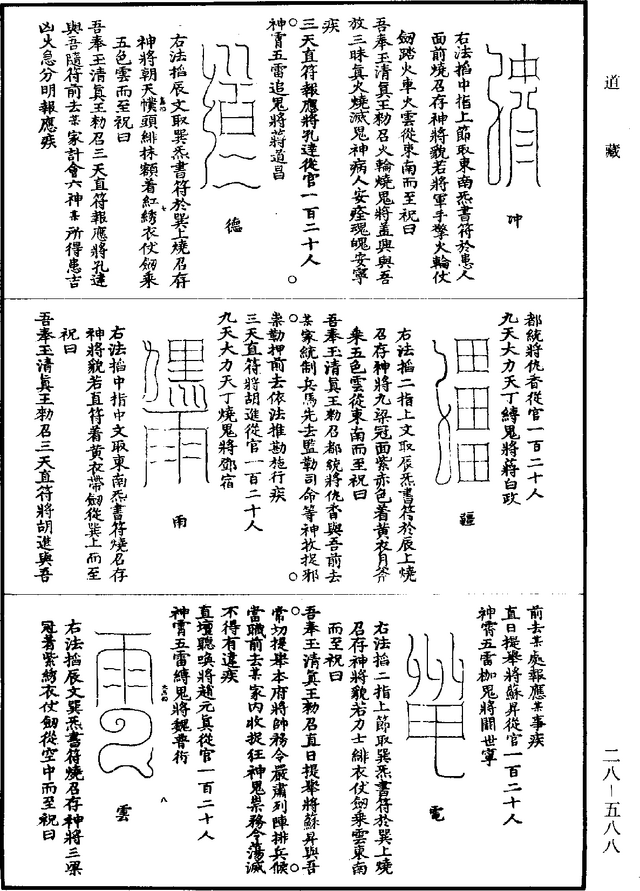 道藏
神
右法掐中指上節取東南炁書符於患人
面前燒召存神將貌若將軍手擎火輪仗
劒踏火車火雲從東南而至祝曰
吾奉玉清真王勑召火輪燒鬼將蓋興與吾
放三昧真火燒滅鬼神病人安痊魂魄安寧
疾
三天直符報應將孔達從官一百二十人
神霄五雷追鬼將蔣道昌
德
右法掐辰文取巽炁書符於巽上燒召存
神將朝天幞頭緋抹額着紅綉衣仗劒乘
五色雲而至祝曰
吾奉玉清真王勑召三天直符報應將孔達
與吾隨符前去某家計會六神某所得患吉
凶火急分明報應疾
都統將仇香從官一百二十人
九天大力天丁縛鬼將蔣白政
疆
右法掐二指上文取辰炁書符於辰上燒
召存神將九梁冠面紫赤色着黃衣月斧
乘五色雲從東南而至祝曰
吾奉玉清真王勑召都統將仇香與吾前去
某家統制兵馬先去監勒司命等神收捉邪
祟勒押前去依法推勘施行疾
三天直符將胡進從官一百二十人
九天大力天丁燒鬼將鄧宿
雨
右法掐中指中文取東南炁書符燒召存
神將貌若直符着黃衣帶劒從巽上而至
祝曰
吾奉玉清真王勑召三天直符將胡進與吾
前去某處報應某事疾
直日提舉將蘇昇從官一百二十人
神霄五雷枷鬼將關世寧
電
右法掐二指上節取巽炁書符於巽上燒
召存神將貌若力士緋衣仗劒乘雲東南
而至祝曰
吾奉玉清真王勑召直日提舉將蘇昇與吾
常切提舉本府將帥務令嚴肅列陣排兵候
當職前去某家內收捉狂神鬼祟務令蕩滅
不得有違疾
直壇聽喚將趙元真從官一百二十人
神霄五雷縛鬼將魏晋衔
雲
右法掐辰文巽炁書符燒召存神將三梁
冠著紫綉衣仗劒從空中而至祝曰
二八-五八八